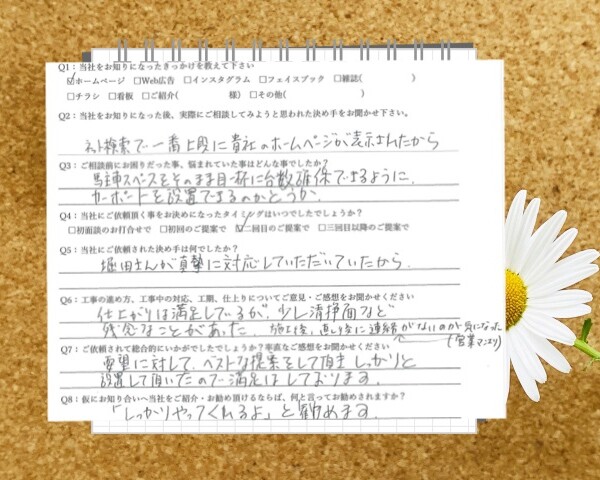 Q1：当社をお知りになったきっかけを教えて下さい
☑ホームページ □Web広告 □インスタグラム □フェイスブック □雑誌( )
□チラシ □看板 □ご紹介( 様) □その他( )
Q2：当社をお知りになった後、実際にご相談してみようと思われた決め手をお聞かせ下さい。
ネット検索で一番上段に貴社のホームページが表示されたから
Q3：ご相談前にお困りだった事、悩まれていた事はどんな事でしたか？
駐車スペースをそのまま目一杯に台数確保できるように、
カーポートを設置できるのかどうか。
Q4：当社にご依頼頂く事をお決めになったタイミングはいつでしたでしょうか？
□初面談のお打合せで □初回のご提案で ☑二回目のご提案で □三回目以降のご提案で
Q5：当社にご依頼された決め手は何でしたか？
堀田さんが真摯に対応していただいていたから。
Q6：工事の進め方、工事中の対応、工期、仕上りについてご意見・ご感想をお聞かせください
仕上がりは満足しているが、少し清掃面など
残念なことがあった。施工後、直し後に連絡がないのが気になった
(営業マンより)
Q7：ご依頼されて総合的にいかがでしたでしょうか？率直なご感想をお聞かせください
要望に対して、ベストな提案をして頂き しっかりと
設置して頂いたので満足はしております。
Q8：仮にお知り合いへ当社をご紹介・お勧め頂けるならば、何と言ってお勧めされますか？
「しっかりやってくれるよ」と勧めます。